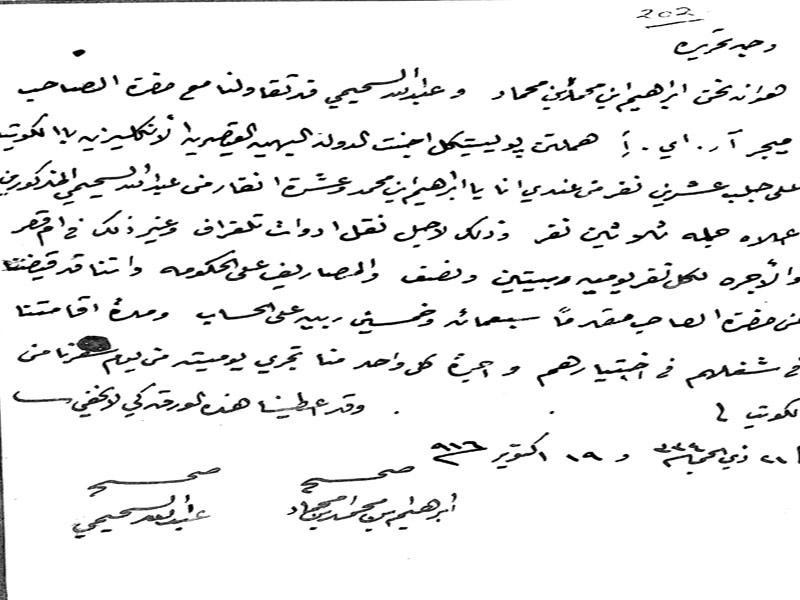 202
وجه تحريره
هو انه نحن ابراهيم ابن محمد ابن محماد و عبدالله السحيمي قد تقاولنا مع حضرة الصاحب
ميجر آر. اي. أ هملتن پوليتيكل اجنت الدولة البهيه القيصريه الأنكليزيه بالكويت
على جلب عشرين نفر من عندي انا يا ابراهيم ابن محمد وعشرة انفار من عبدالله السحيمي المذكورين
عملاه جمله ثلاثين نفر وذلك لاجل نقل ادوات تلغراف وغير ذلك في ام قصر
والأجره لكل نفر يوميه ربيتين ونصف والمصاريف على الحكومه واننا قد قبضنا
من حضرة الصاحب مقدماً سبعمائه وخمسين ربيه على الحساب ومدة اقامتنا
في شغلهم في اختيارهم واجرة كل واحد منا تجري يوميته من يوم سفرنا من
الكويت وقد عطينا هذه الورقه كي لا يخفى
٢١ ذي الحجه ٣٣٤ و ١٩ اكتوبر ٩١٦
صحيح صحيح
ابراهيم بن محمد ابن محماد عبدالله السحيمي